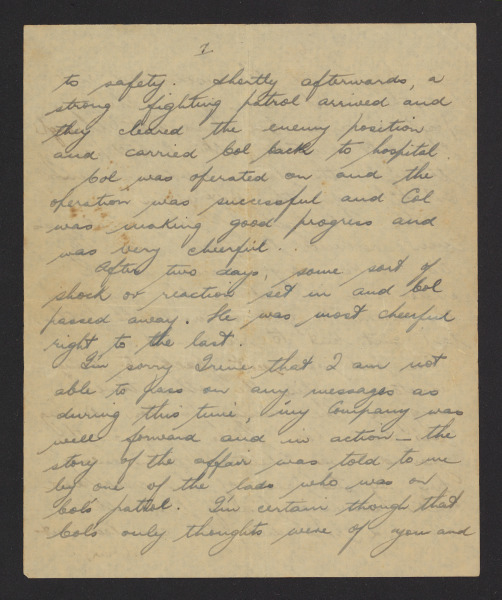 7.
to safety. Shortly afterwards, a
strong fighting patrol arrived and
they cleared the enemy position
and carried Col back to hospital.
Col was operated on and the
operation was successful and Col
was making good progress and
was very cheerful..
After two days, some sort of
shock or reaction set in and Col
passed away. He was most cheerful
right to the last.
I'm sorry Irene that I am not
able to pass on any messages as
during this time, my Company was
well forward and in action - the
story of the affair was told to me
by one of the lads who was on
Col's patrol. I'm certain though that
Col's only thoughts were of you and